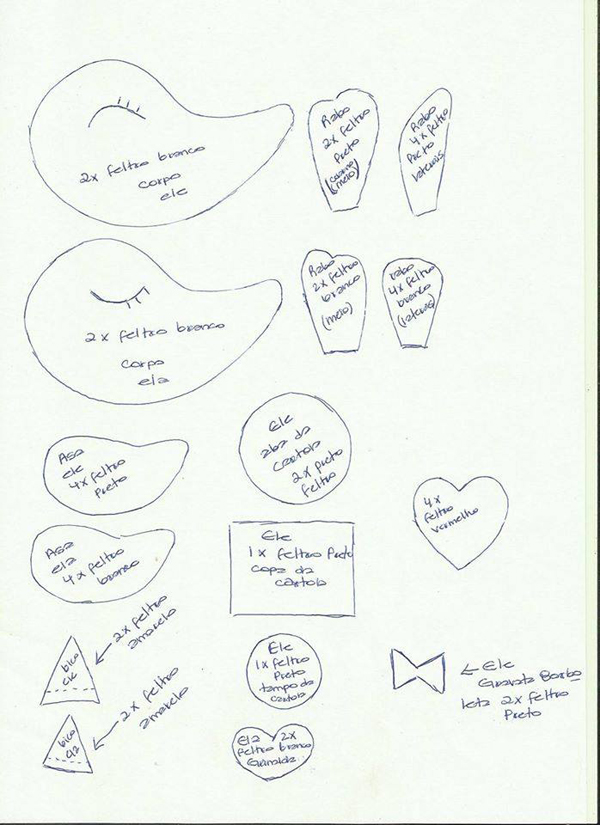 2x feltro branco
corpo
ele
Rabo
2x feltro
Preto
(meio)
Rabo
4x feltro
Preto
laterais
2x feltro branco
corpo
ela
Rabo
2x feltro
branco
(meio)
rabo
4x feltro
branco
(laterais)
Asa
ele
4x feltro
Preto
Ele
aba da
cartola
2x preto
feltro
4x
feltro
vermelho
Asa
ela
4x feltro
branco
Ele
1x feltro Preto
copa da
cartola
bico
ele
2x feltro
amarelo
Ele
1x feltro
Preto
tampo da
cartola
← Ele
Gravata Borbo
leta 2x feltro
Preto
bico
ela
2x feltro
amarelo
Ela 2x
feltro branco